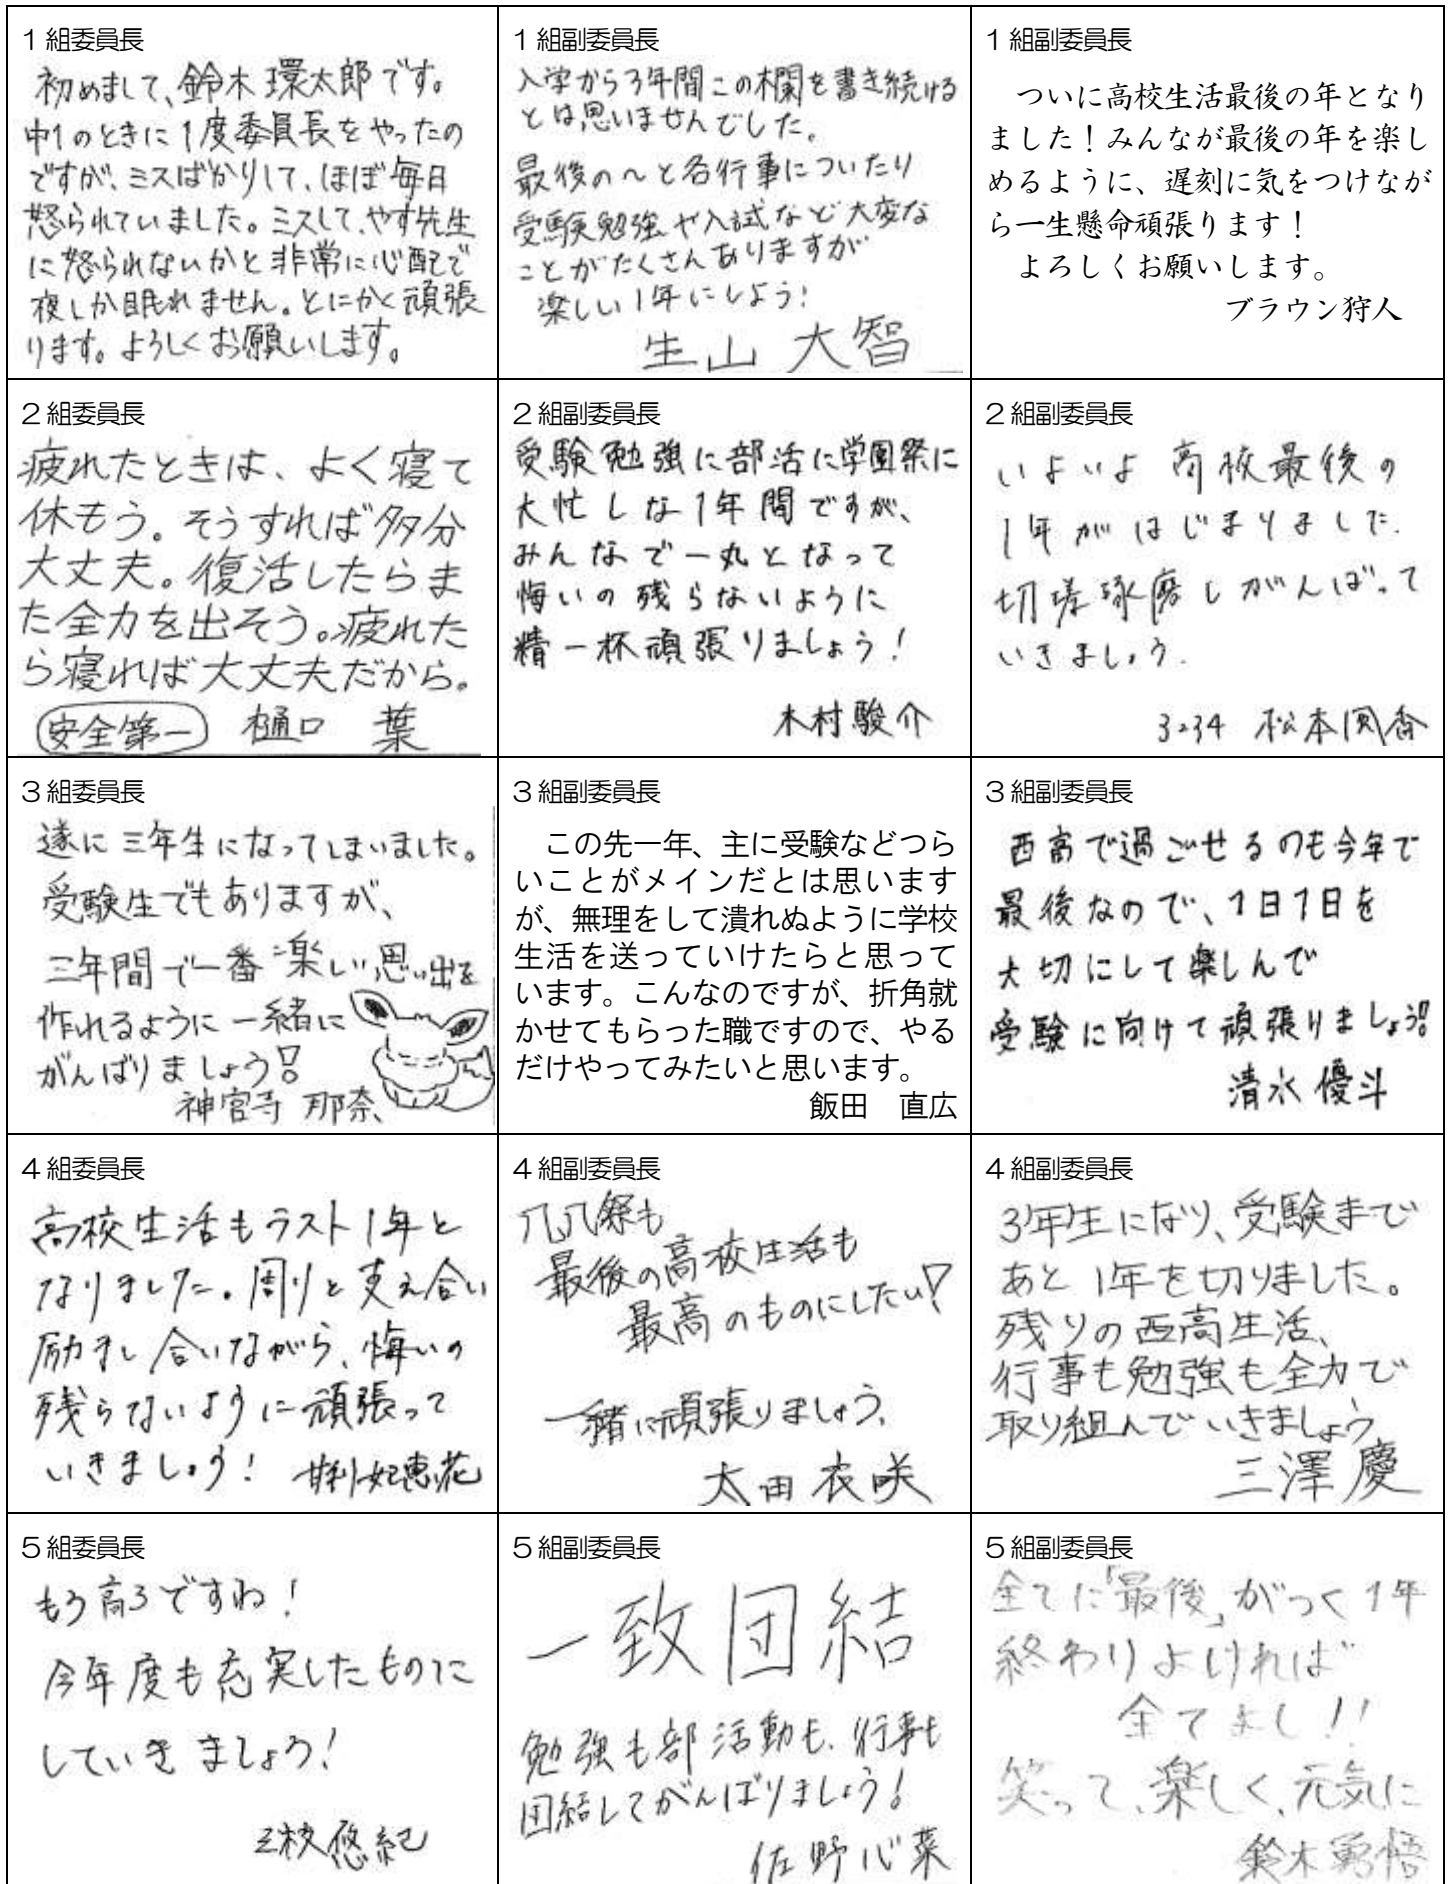 1組委員長
初めまして、鈴木環太郎です。
中1のときに1度委員長をやったの
ですが、ミスばかりして、ほぼ毎日
怒られていました。ミスして、やす先生
に怒られないかと非常に心配で
夜しか眠れません。とにかく頑張
ります。よろしくお願いします。
1組副委員長
入学から3年間この欄を書き続ける
とは思いませんでした。
最後の〜と各行事についたり
受験勉強や入試など大変な
ことがたくさんありますが
楽しい1年にしよう!
生山 大智
1組副委員長
ついに高校生活最後の年となり
ました!みんなが最後の年を楽し
めるように、遅刻に気をつけなが
ら一生懸命頑張ります!
よろしくお願いします。
ブラウン狩人
2組委員長
疲れたときは、よく寝て
休もう。そうすれば多分
大丈夫。復活したらま
た全力を出そう。疲れた
ら寝れば大丈夫だから。
安全第一 樋口 葉
2組副委員長
受験勉強に部活に学園祭に
大忙しな1年間ですが、
みんなで一丸となって
悔いの残らないように
精一杯頑張りましょう!
木村駿介
2組副委員長
いよいよ高校最後の
1年がはじまりました.
切磋琢磨しがんばって
いきましょう.
3234 松本 香
3組委員長
遂に三年生になってしまいました。
受験生でもありますが、
三年間で一番楽しい思い出を
作れるように一緒に
がんばりましょう!
神宮寺 那奈
3組副委員長
この先一年、主に受験などつら
いことがメインだとは思います
が、無理をして潰れぬように学校
生活を送っていけたらと思って
います。こんなのですが、折角就
かせてもらった職ですので、やる
だけやってみたいと思います。
飯田 直広
3組副委員長
西高で過ごせるのも今年で
最後なので、1日1日を
大切にして楽しんで
受験に向けて頑張りましょう!!
清水優斗
4組委員長
高校生活もラスト1年と
なりました。周りと支え合い
励まし合いながら、悔いの
残らないように頑張って
いきましょう! 甘利妃恵花
4組副委員長
八八祭も
最後の高校生活も
最高のものにしたい!
一緒に頑張りましょう、
太田衣咲
4組副委員長
3年生になり、受験まで
あと1年を切りました。
残りの西高生活、
行事も勉強も全力で
取り組んでいきましょう
三澤慶
5組委員長
もう高3ですね!
今年度も充実したものに
していきましょう!
三枝悠紀
5組副委員長
一致団結
勉強も部活動も、行事も
団結してがんばりましょう!
佐野心菜
5組副委員長
全てに「最後」がつく1年
終わりよければ
全てよし!!
笑って、楽しく、元気に
鈴木勇悟